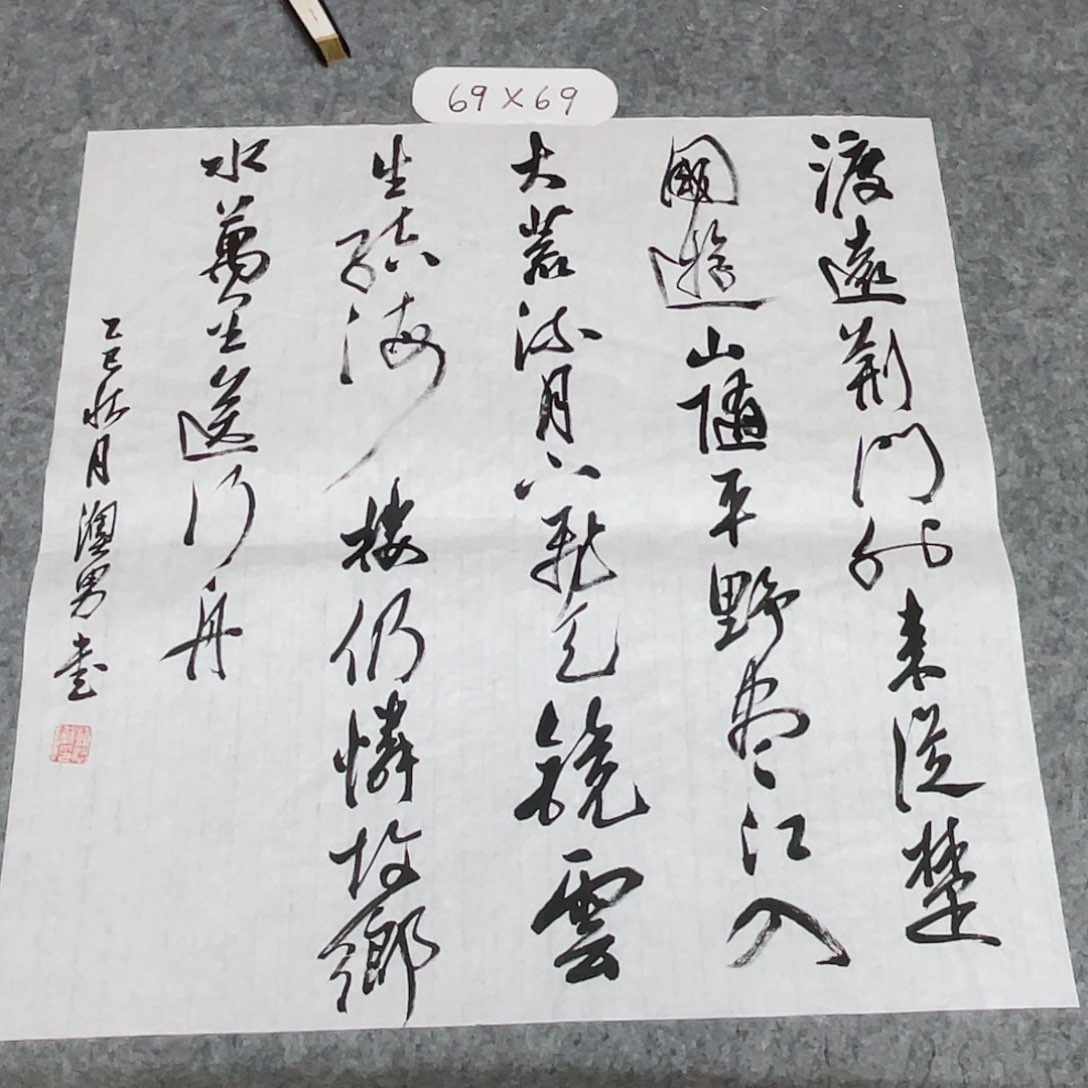 69×69
渡遠荆門外来從楚
國遊山隨平野尽江入
大荒流月下飛天鏡雲
生結海樓仍憐故鄉
水萬里送行舟
乙巳秋月澳男書